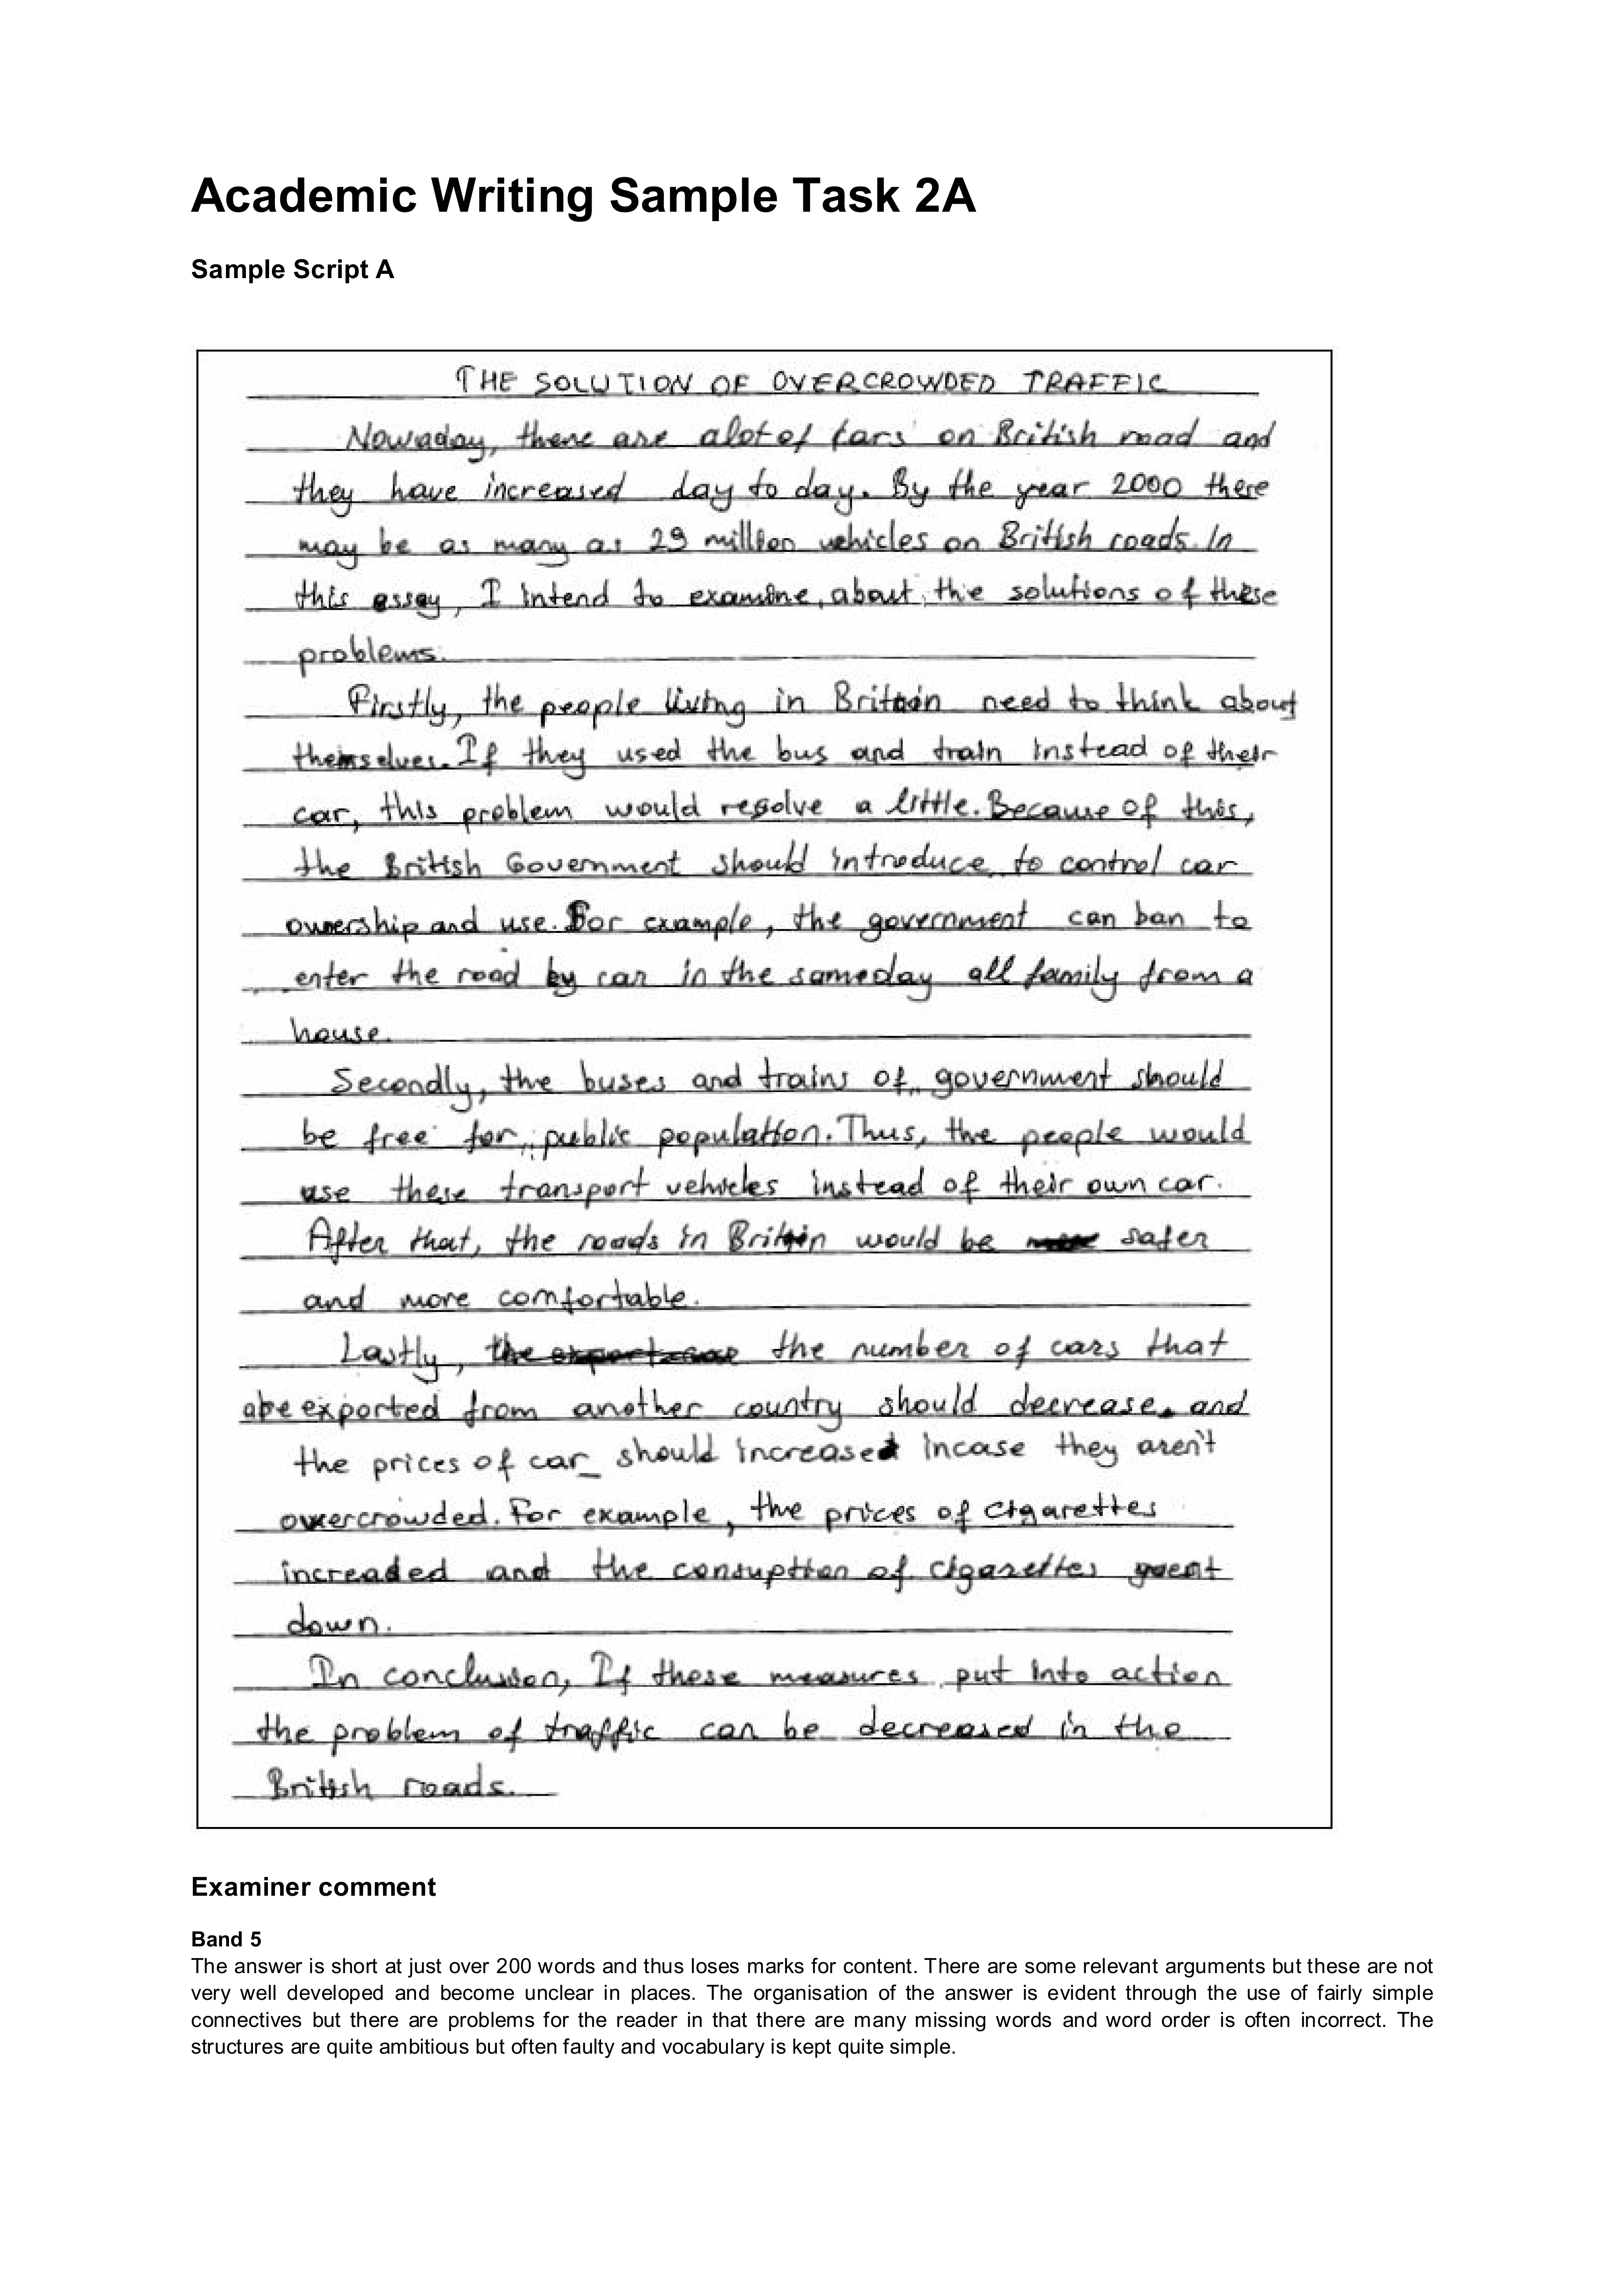 Academic Writing Sample Task 2A
Sample Script A
THE SOLUTION OF OVERCROWDED TRAFFIC
Nowaday, there are alot of cars on British road and
they have increased day to day. By the year 2000 there
may be as many as 29 million vehicles on British roads. In
this essay, I intend to examine, about, the solutions of these
problems.
Firstly, the people living in Britain need to think about
themselves. If they used the bus and train instead of their
car, this problem would resolve a little. Because of this,
the British Government should introduce to control car
ownership and use. For example, the government can ban to
enter the road by car in the sameday all family from a
house.
Secondly, the buses and trains of government should
be free for public population. Thus, the people would
use these transport vehicles instead of their own car.
After that, the roads in Britain would be safer
and more comfortable.
Lastly, the number of cars that
are exported from another country should decrease and
the prices of car should increase incase they aren't
overcrowded. For example, the prices of cigarettes
increaded and the consuption of cigarettes went
down.
In conclusion, If these measures put into action
the problem of traffic can be decreased in the
British roads.
Examiner comment
Band 5
The answer is short at just over 200 words and thus loses marks for content. There are some relevant arguments but these are not
very well developed and become unclear in places. The organisation of the answer is evident through the use of fairly simple
connectives but there are problems for the reader in that there are many missing words and word order is often incorrect. The
structures are quite ambitious but often faulty and vocabulary is kept quite simple.